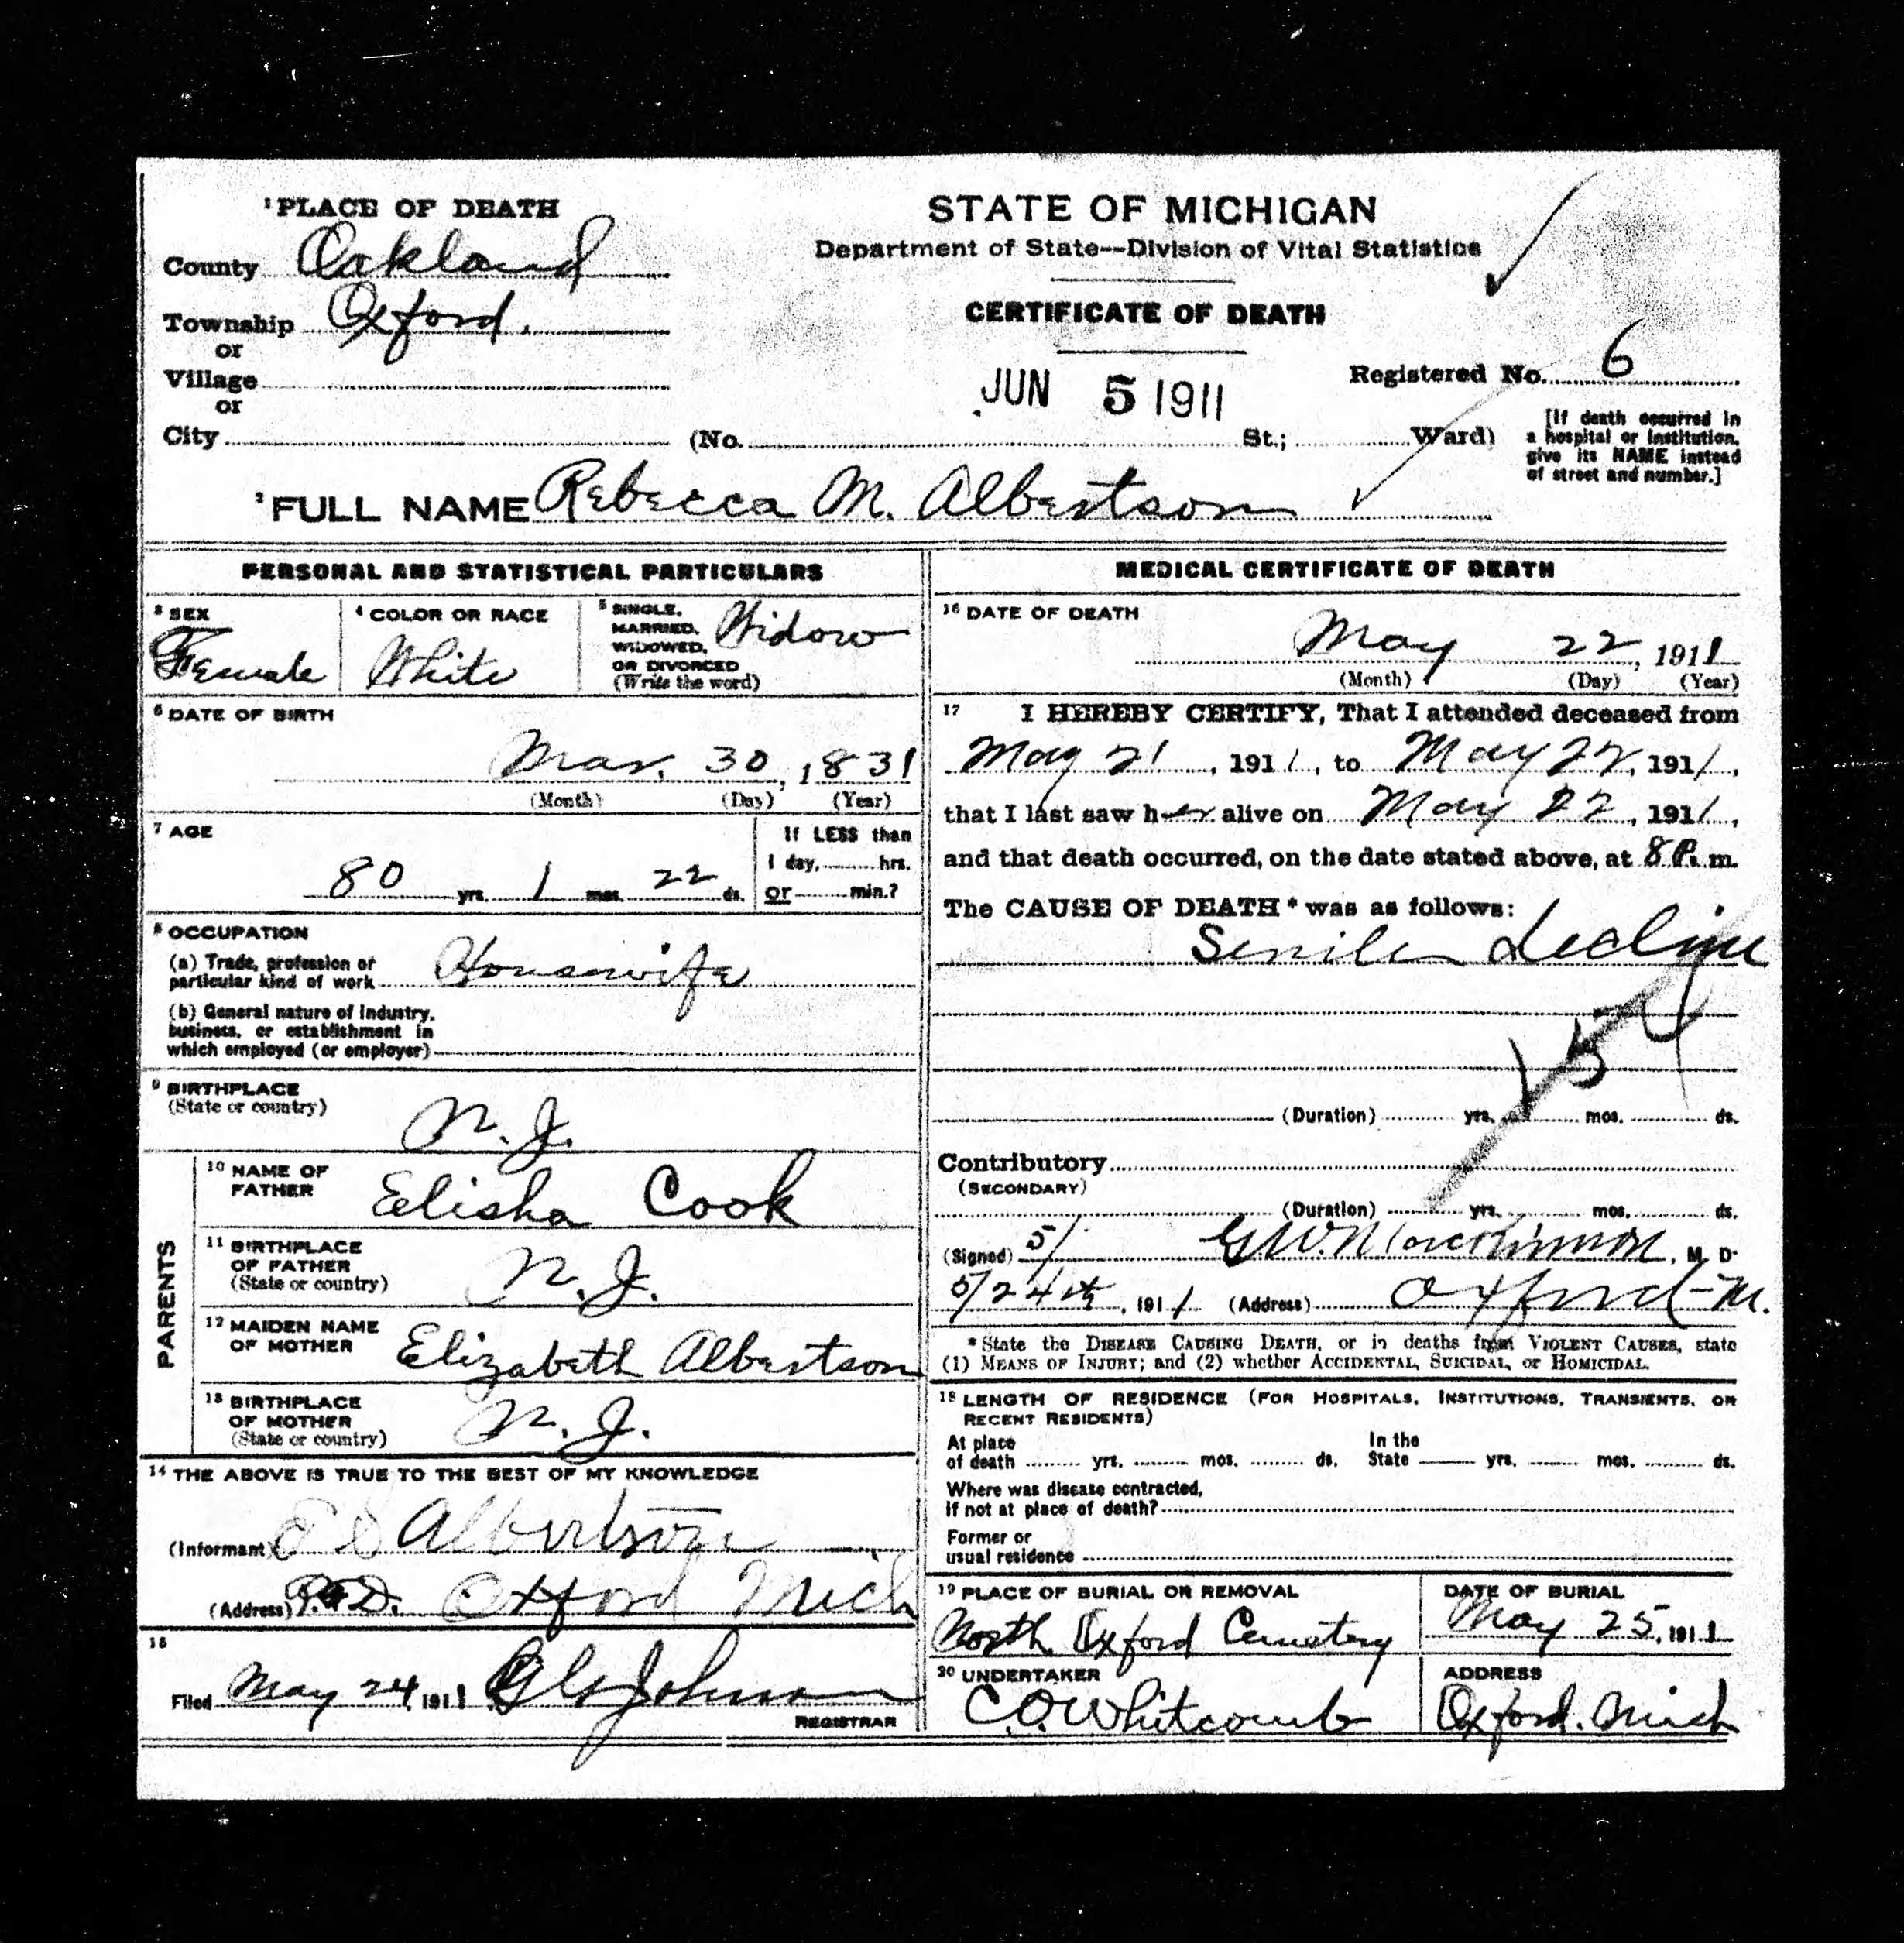 1 PLACE OF DEATH
County Oakland
Township Oxford.
or
Village
or
City
STATE OF MICHIGAN
Department of State--Division of Vital Statistics
CERTIFICATE OF DEATH
JUN 5 1911
Registered No. 6
(No. St.; Ward)
[If death occurred in
a hospital or institution,
give its NAME instead
of street and number.]
2 FULL NAME Rebecca M. Albertson
PERSONAL AND STATISTICAL PARTICULARS
3 SEX
Female
4 COLOR OR RACE
White
5 SINGLE,
MARRIED,
WIDOWED,
OR DIVORCED
(Write the word)
Widow
6 DATE OF BIRTH
Mar. 30, 1831
(Month) (Day) (Year)
7 AGE
80 yrs. 1 mos. 22 ds.
If LESS than
1 day, hrs.
or min.?
8 OCCUPATION
(a) Trade, profession or
particular kind of work Housewife
(b) General nature of industry,
business, or establishment in
which employed (or employer)
9 BIRTHPLACE
(State or country)
N. J.
PARENTS
10 NAME OF
FATHER
Elisha Cook
11 BIRTHPLACE
OF FATHER
(State or country)
N. J.
12 MAIDEN NAME
OF MOTHER
Elizabeth Albertson
13 BIRTHPLACE
OF MOTHER
(State or country)
N. J.
14 THE ABOVE IS TRUE TO THE BEST OF MY KNOWLEDGE
(Informant) Albertson
(Address) Oxford Mich
15
Filed May 24, 1911 Johnson
REGISTRAR
MEDICAL CERTIFICATE OF DEATH
16 DATE OF DEATH
May 22, 1911
(Month) (Day) (Year)
17 I HEREBY CERTIFY, That I attended deceased from
May 21, 1911, to May 22, 1911,
that I last saw her alive on May 22, 1911,
and that death occurred, on the date stated above, at 8 P. m.
The CAUSE OF DEATH * was as follows:
Senile Decline
154
(Duration) yrs. mos. ds.
Contributory
(SECONDARY)
(Duration) yrs. mos. ds.
(Signed) 5/ G.W. , M. D.
5/24th, 1911 (Address) Oxford-M.
* State the DISEASE CAUSING DEATH, or in deaths from VIOLENT CAUSES, state
(1) MEANS OF INJURY; and (2) whether ACCIDENTAL, SUICIDAL, or HOMICIDAL.
18 LENGTH OF RESIDENCE (FOR HOSPITALS, INSTITUTIONS, TRANSIENTS, OR
RECENT RESIDENTS)
At place
of death yrs. mos. ds.
In the
State yrs. mos. ds.
Where was disease contracted,
if not at place of death?
Former or
usual residence
19 PLACE OF BURIAL OR REMOVAL
North Oxford Cemetery
DATE OF BURIAL
May 25, 1911
20 UNDERTAKER
C.O. Whitcomb
ADDRESS
Oxford. Mich